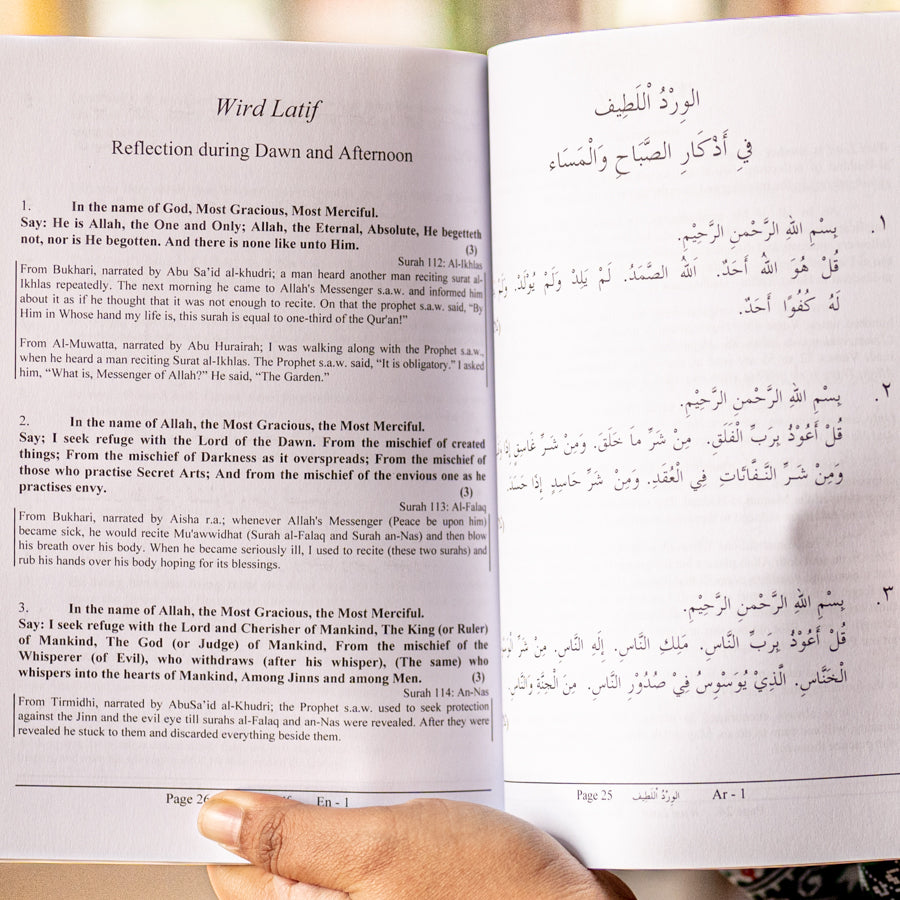 Wird Latif
Reflection during Dawn and Afternoon
1. In the name of God, Most Gracious, Most Merciful.
Say: He is Allah, the One and Only; Allah, the Eternal, Absolute, He begetteth
not, nor is He begotten. And there is none like unto Him.
(3)
Surah 112: Al-Ikhlas
From Bukhari, narrated by Abu Sa’id al-khudri; a man heard another man reciting surat al-
Ikhlas repeatedly. The next morning he came to Allah's Messenger s.a.w. and informed him
about it as if he thought that it was not enough to recite. On that the prophet s.a.w. said, “By
Him in Whose hand my life is, this surah is equal to one-third of the Qur'an!”
From Al-Muwatta, narrated by Abu Hurairah; I was walking along with the Prophet s.a.w.,
when he heard a man reciting Surat al-Ikhlas. The Prophet s.a.w. said, “It is obligatory.” I asked
him, “What is, Messenger of Allah?” He said, “The Garden.”
2. In the name of Allah, the Most Gracious, the Most Merciful.
Say; I seek refuge with the Lord of the Dawn. From the mischief of created
things; From the mischief of Darkness as it overspreads; From the mischief of
those who practise Secret Arts; And from the mischief of the envious one as he
practises envy.
(3)
Surah 113: Al-Falaq
From Bukhari, narrated by Aisha r.a.; whenever Allah's Messenger (Peace be upon him)
became sick, he would recite Mu'awwidhat (Surah al-Falaq and Surah an-Nas) and then blow
his breath over his body. When he became seriously ill, I used to recite (these two surahs) and
rub his hands over his body hoping for its blessings.
3. In the name of Allah, the Most Gracious, the Most Merciful.
Say: I seek refuge with the Lord and Cherisher of Mankind, The King (or Ruler)
of Mankind, The God (or Judge) of Mankind, From the mischief of the
Whisperer (of Evil), who withdraws (after his whisper), (The same) who
whispers into the hearts of Mankind, Among Jinns and among Men.
(3)
Surah 114: An-Nas
From Tirmidhi, narrated by AbuSa’id al-Khudri; the Prophet s.a.w. used to seek protection
against the Jinn and the evil eye till surahs al-Falaq and an-Nas were revealed. After they were
revealed he stuck to them and discarded everything beside them.
Page 26 En - 1
الوِرْدُ اْللَطِيف
فِي أَذْكَارِ الصَّبَاحِ وَالْمَسَاء
١. بِسْمِ اللهِ الرَّحْمنِ الرَّحِيْمِ.
قُلْ هُوَ اللهُ أَحَدٌ. اَللهُ الصَّمَدُ. لَمْ يَلِدْ وَلَمْ يُوْلَدْ. وَلَمْ
لَهُ كُفُوًا أَحَدٌ.
٢. بِسْمِ اللهِ الرَّحْمنِ الرَّحِيْمِ.
قُلْ أَعُوْذُ بِرَبِّ الْفَلَقِ. مِنْ شَرِّ مَا خَلَقَ. وَمِنْ شَرِّ غَاسِقٍ إِذَا
وَمِنْ شَرِّ النَّفَّاثَاتِ فِي الْعُقَدِ. وَمِنْ شَرِّ حَاسِدٍ إِذَا حَسَدَ.
٣. بِسْمِ اللهِ الرَّحْمنِ الرَّحِيْمِ.
قُلْ أَعُوْذُ بِرَبِّ النَّاسِ. مَلِكِ النَّاسِ. إِلَهِ النَّاسِ. مِنْ شَرِّ
الْخَنَّاسِ. الَّذِيْ يُوَسْوِسُ فِيْ صُدُوْرِ النَّاسِ. مِنَ الْجِنَّةِ وَالنَّاسِ.
Page 25 الوِرْدُ اْللَطِيف Ar - 1